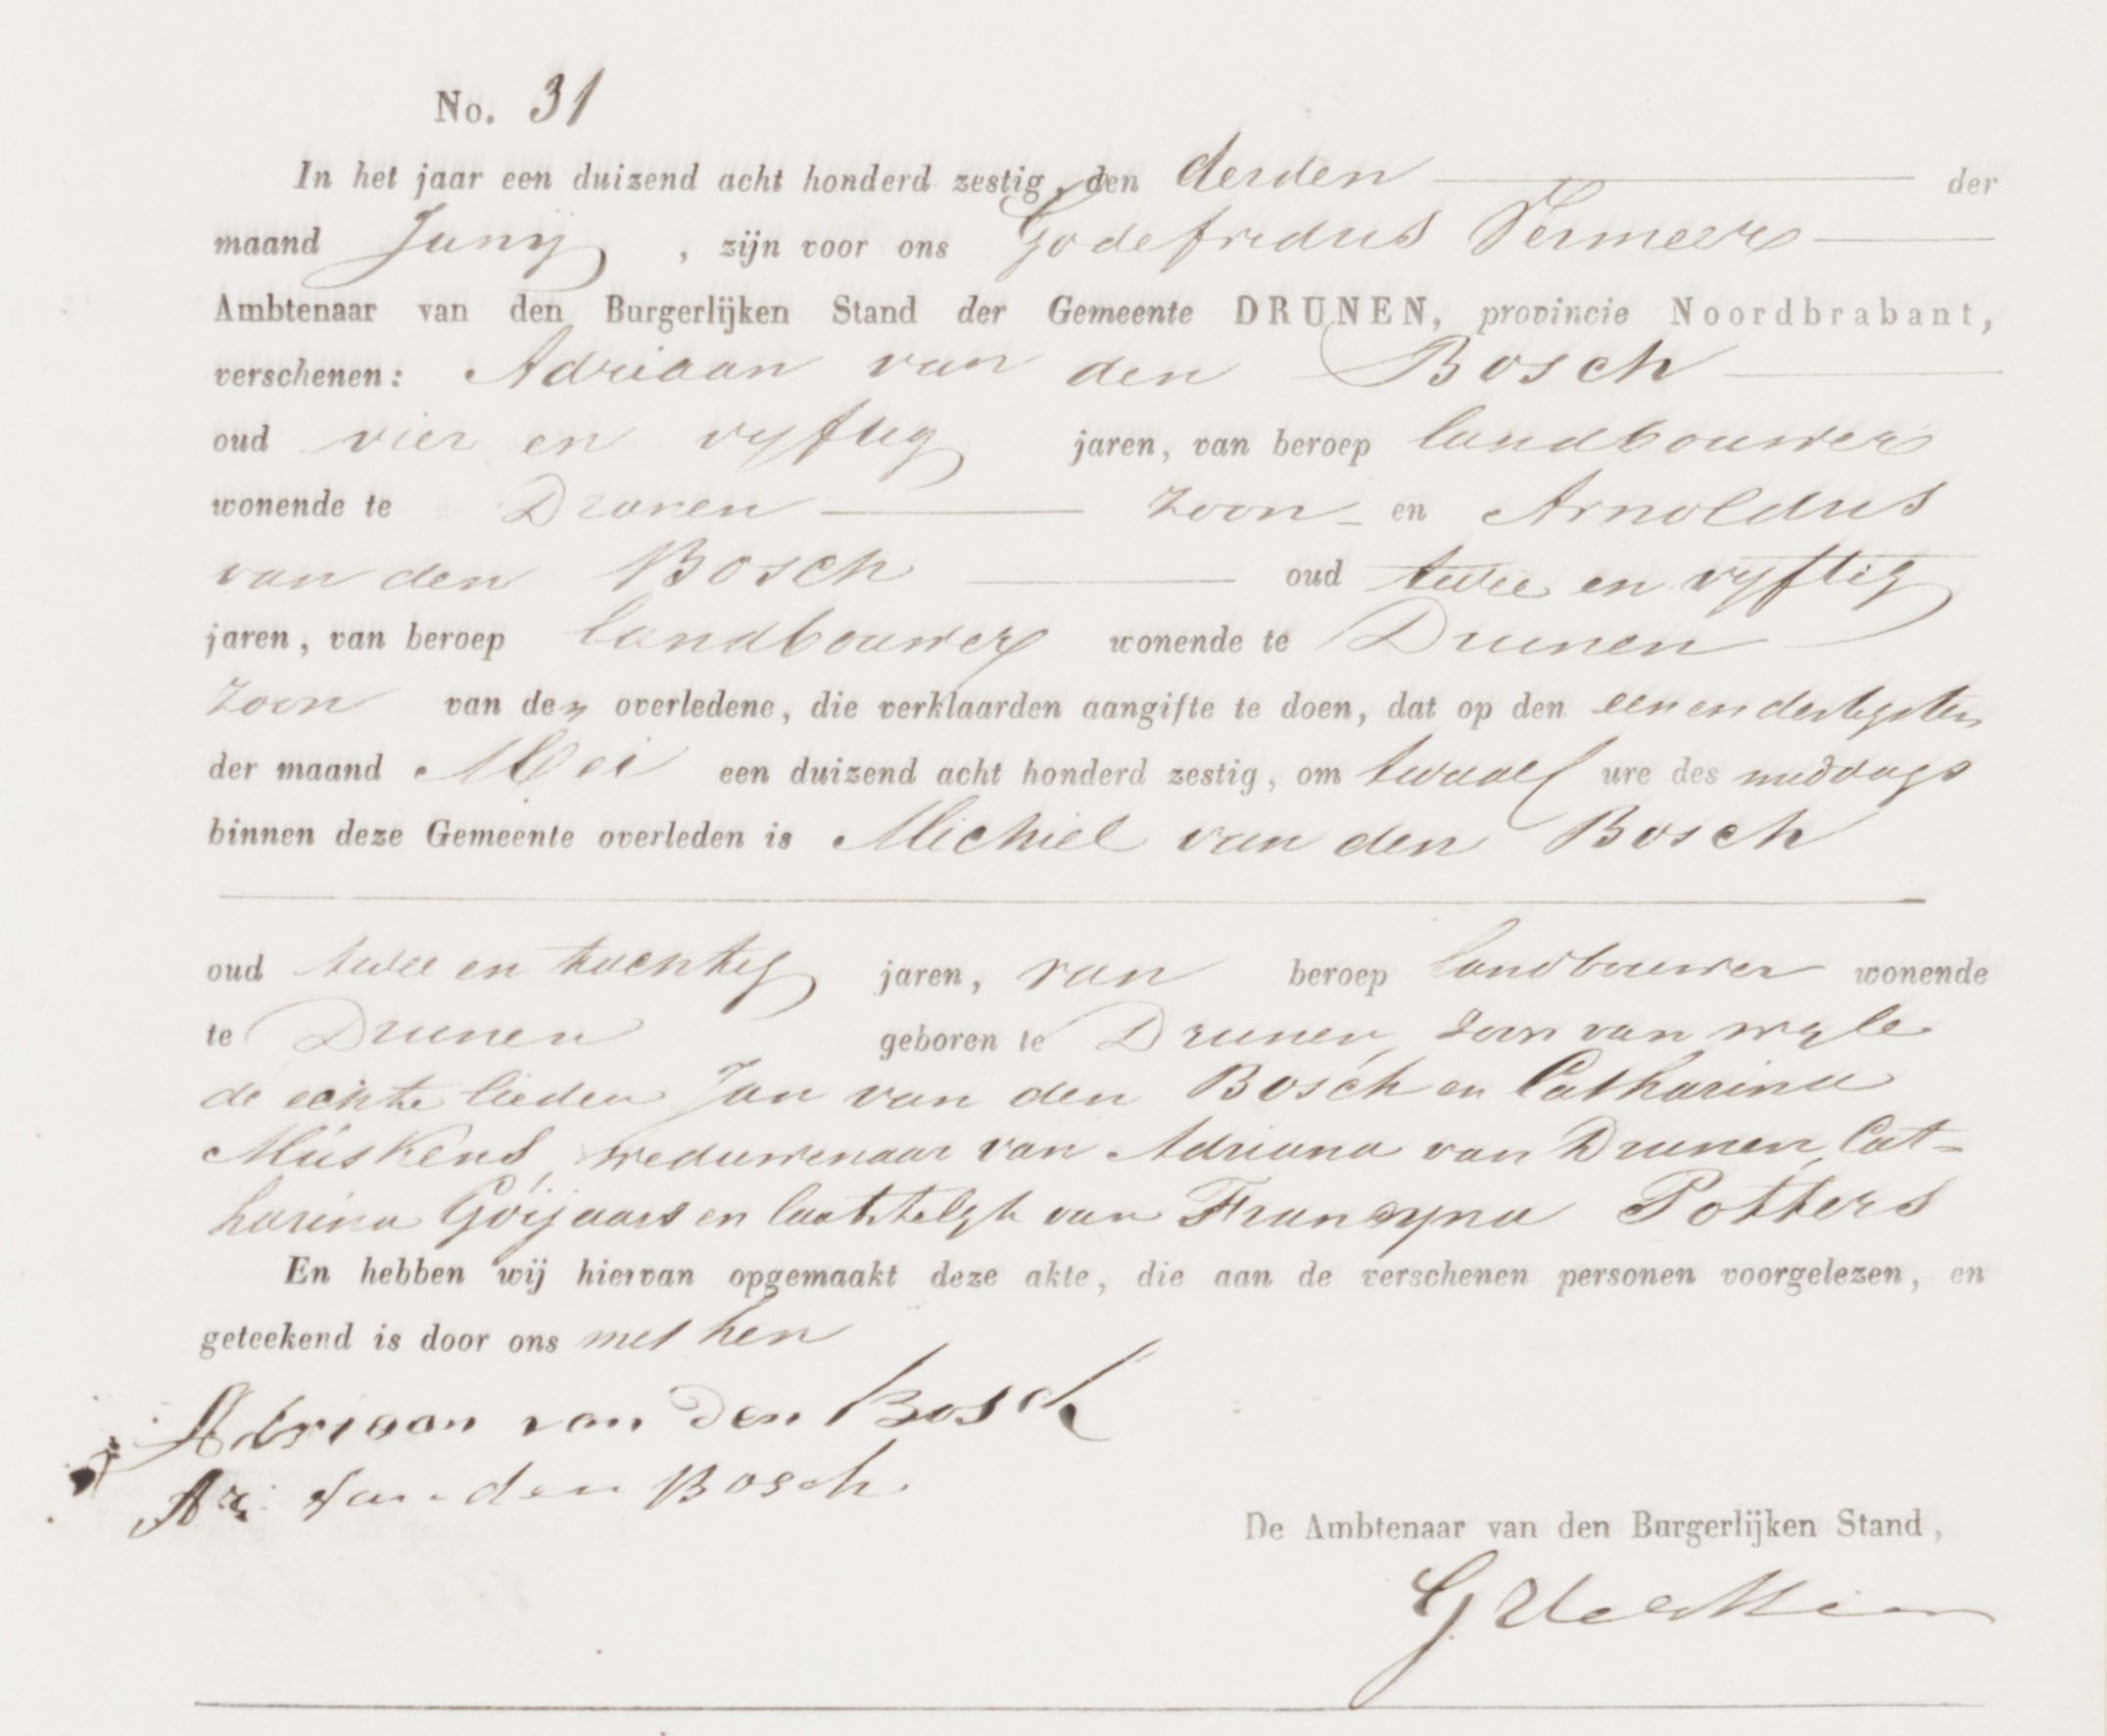 No. 31
In het jaar een duizend acht honderd zestig, den derden der
maand Junij, zijn voor ons Godefridus Vermeer
Ambtenaar van den Burgerlijken Stand der Gemeente DRUNEN, provincie Noordbrabant,
verschenen: Adriaan van den Bosch
oud vier en vyftig jaren, van beroep landbouwer
wonende te Drunen zoon en Arnoldus
van den Bosch oud twee en vyftig
jaren, van beroep landbouwer wonende te Drunen
zoon van den overledene, die verklaarden aangifte te doen, dat op den een en dertigsten
der maand Mei een duizend acht honderd zestig, om twaalf ure des middags
binnen deze Gemeente overleden is Michiel van den Bosch
oud twee en tachtig jaren, van beroep landbouwer wonende
te Drunen geboren te Drunen, zoon van wyle
de echte lieden Jan van den Bosch en Catharina
Muskens, weduwenaar van Adriana van Drunen, Cat=
harina Goijaars en laatstelyk van Francyna Potters
En hebben wij hiervan opgemaakt deze akte, die aan de verschenen personen voorgelezen, en
geteekend is door ons met hen
Adriaan van den Bosch
Ar: van den Bosch.
De Ambtenaar van den Burgerlijken Stand,
G VerMeer